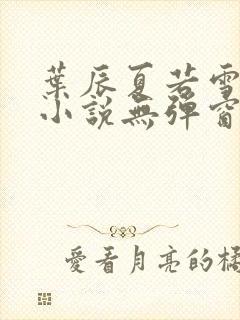 葉辰夏若雪
小說無彈窗
愛看月亮的橘